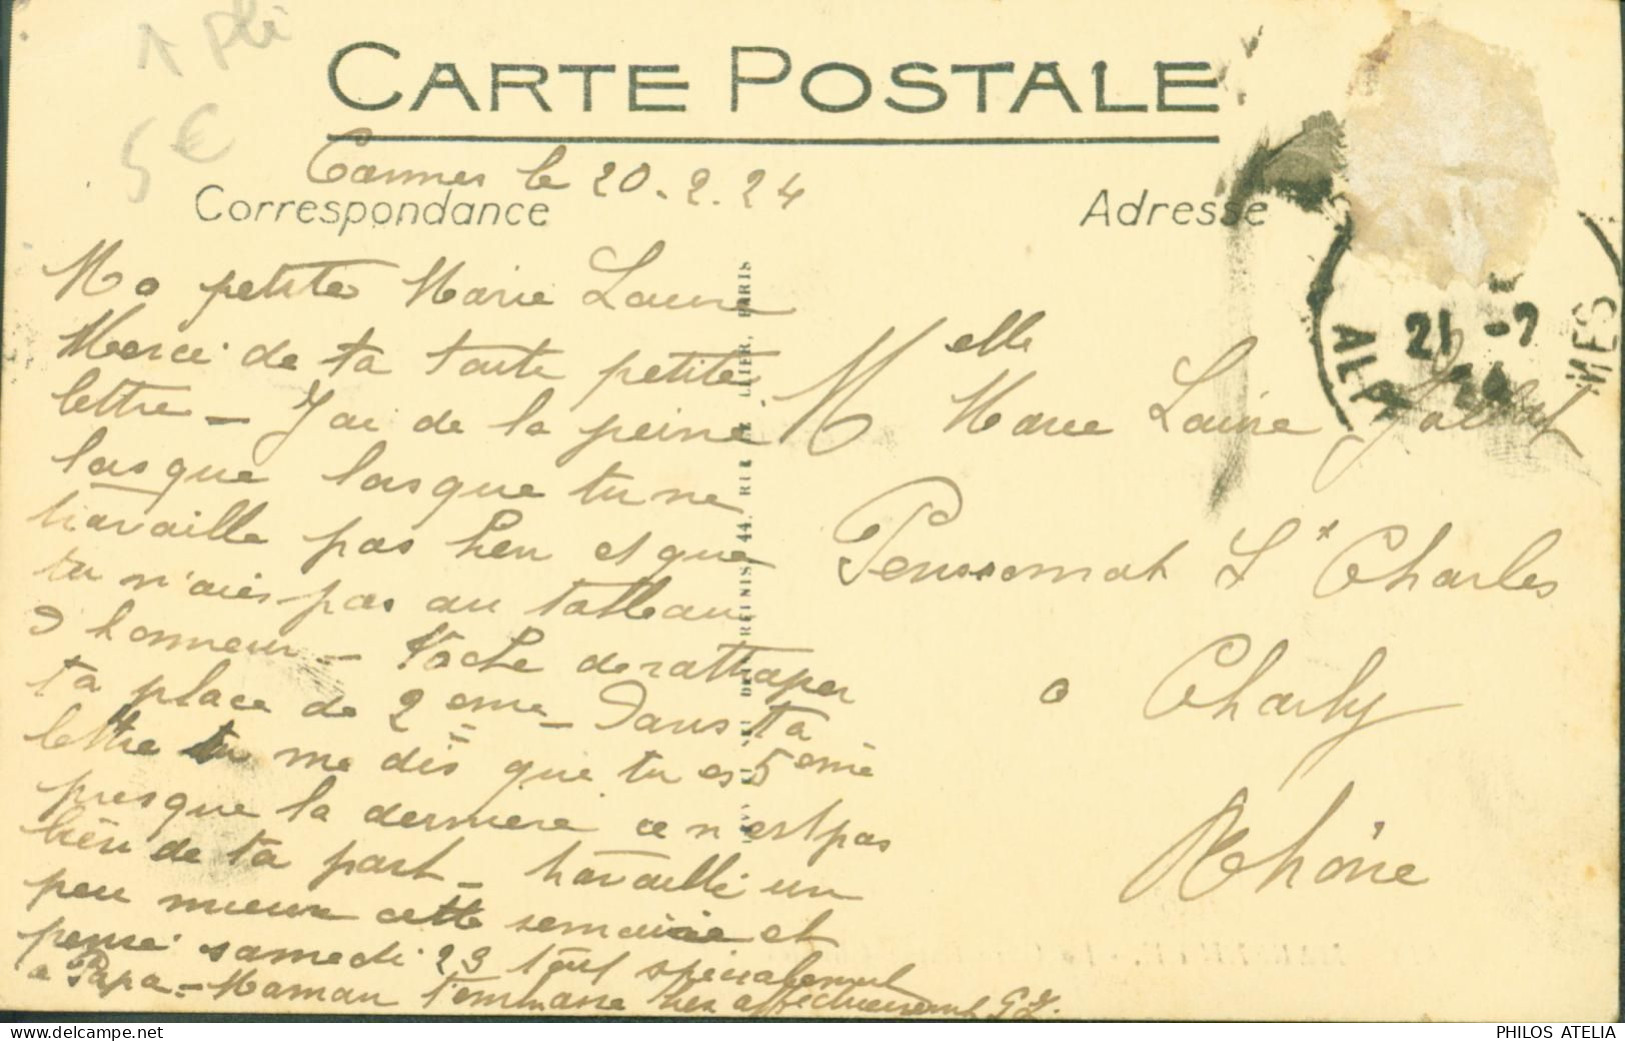 1 pli
5€
CARTE POSTALE
Cannes le 20.2.24
Correspondance
Adresse
Ma petite Marie Laure
Merci de ta toute petite
lettre - J'ai de la peine
lasque lasque tu ne
travaille pas bien et que
tu n'aies pas au tableau
d honneur - tache de rattraper
ta place de 2eme - Dans ta
lettre tu me dis que tu es 5eme
presque la derniere ce n'est pas
bien de ta part - travaille un
peu mieux cette semaine et
pense samedi 23 tout specialement
a Papa - Maman t'embrasse bien affectueusement G J.
Melle Marie Laure
Pensionnat St Charles
a Charly
Rhône
21 -2
24
ALP
MES
44, RUE
PARIS
PHILOS ATELIA